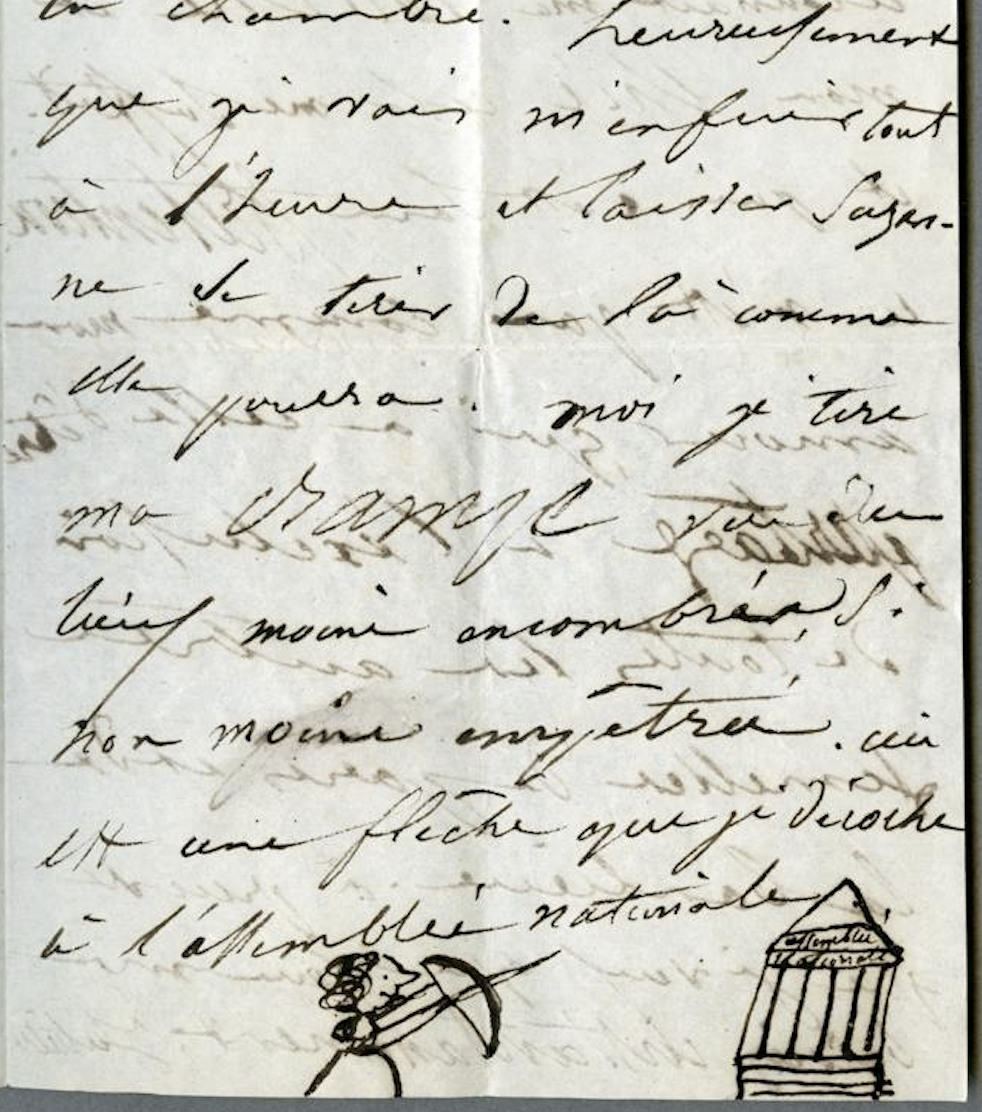 la chambre. heureusement
que je vais m'enfuir tout
à l'heure et laisser Suzan-
ne se tirer de là comme
elle pourra. moi je tire
ma crampe vers des
lieux moins encombrés, Si
non moins empêtrés. ceci
est une flèche que je décoche
à l'assemblée nationale
assemblée
nationale